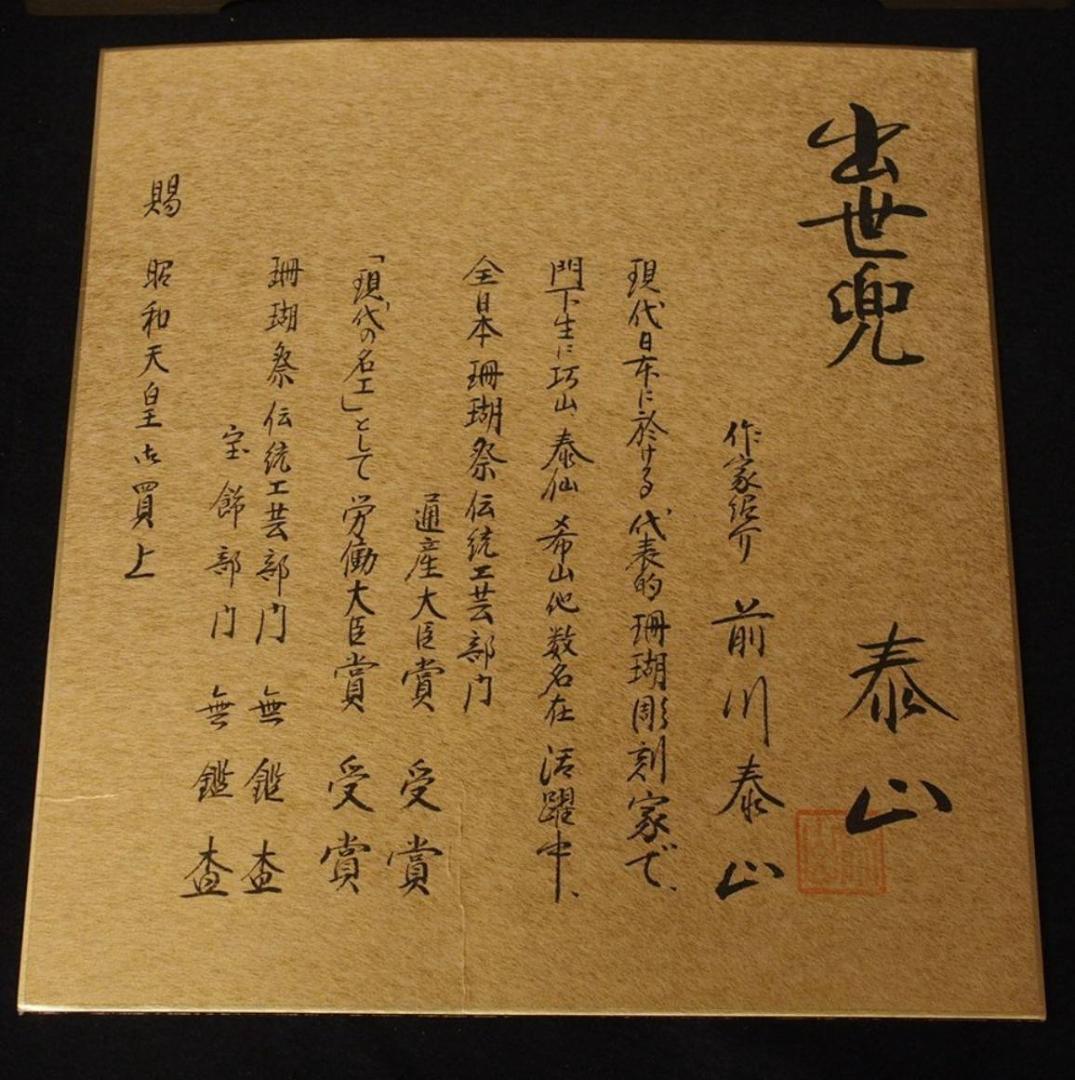 出世兜 泰山
作家紹介 前川泰山
現代日本に於ける代表的珊瑚彫刻家で、
門下生に巧山 泰仙 希山他数名在活躍中、
全日本珊瑚祭伝統工芸部門
通産大臣賞 受賞
「現代の名工」として労働大臣賞 受賞
珊瑚祭伝統工芸部門 無鑑査
宝飾部門 無鑑査
賜 昭和天皇御買上